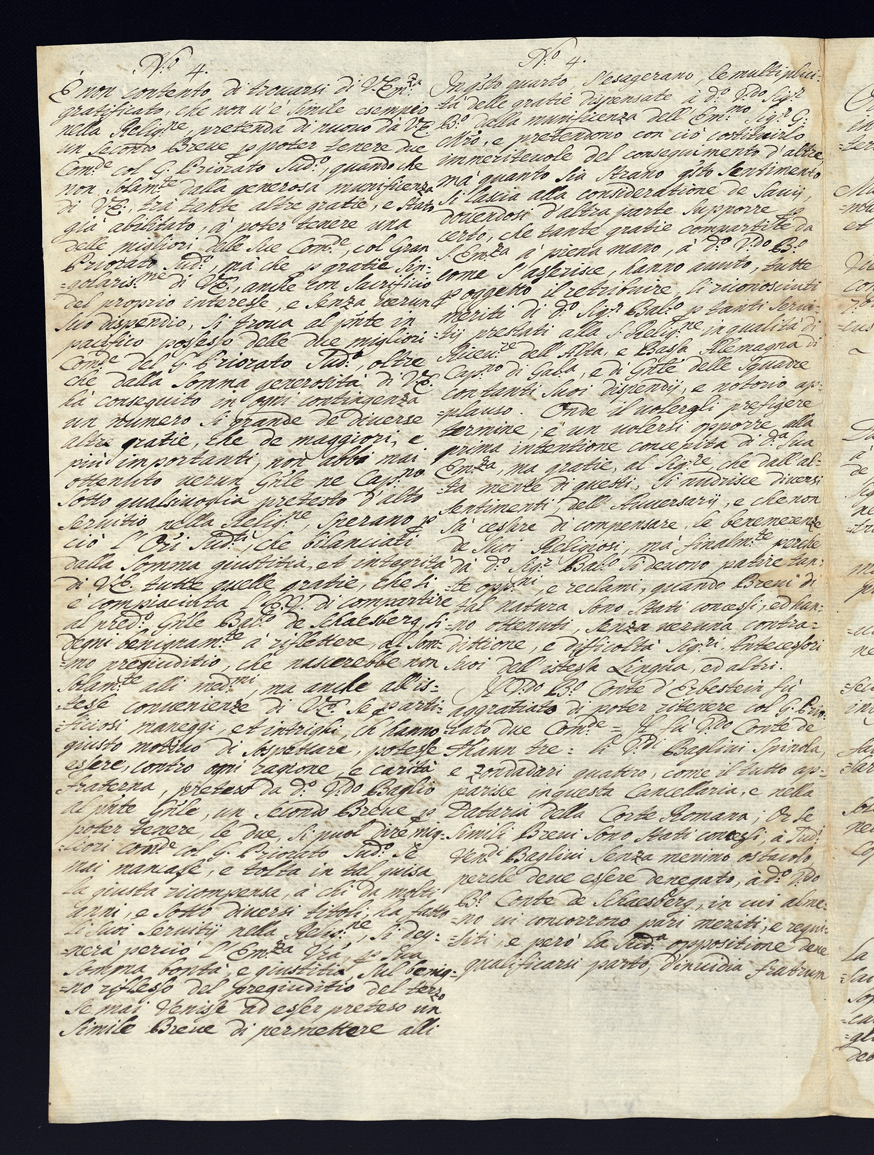 N.o 4.
È non contento di trovarsi di V.Em.za
gratificato, che non v'è simile esempio
nella Relig.ne, pretenda di nuovo da V.E.
un secondo Breve p poter tenere due
Com.de col G. Priorato Sud.o, quando che
non solam.te dalla generosa munificenza
di V.E. trà tante altre gratie, e stato
già abilitato, à poter tenere una
delle migliori delle sue Com.de, col Gran
Priorato Sud.o, mà che p gratie sin-
=golariss.me di V.E., anche con sacrificio
del proprio interesse, e senza verun
suo dispendio, si trova al pñte in
pacifico possesso delle due migliori
Com.de del G. Priorato Sud.o, oltre
che dalla somma generosità di V.E.
hà conseguito in ogni contingenza
un numero si grande de diverse
altre gratie, che de maggiori, e
più importanti, non abbi mai
ottenuto verun Gñle ne Cap.no
sotto qualsivoglia pretesto d'alto
servitio nella Relig.ne, sperano p
ciò l'Ori Sud.ti, che bilanciati
dalla somma giustitia, et integrità
di V.E. tutte quelle gratie, che si
è compiaciuta l'E.V. di compartire
al pred.o Gñle Bal.o de Schaesberg, si
degni benignam.te a riflettere, al som-
=mo pregiuditio, che nascerebbe non
solam.te alli med.mi, ma anche all'is-
=tese convenienze di V.E. se p arti-
=ficiosi maneggi, et intrighi, ch'hanno
giusto motivo di sospettare, potesse
essere, contro ogni ragione e carità
fraterna, preteso da d.o V.do Baglio
al pñte Gñle, un secondo Breve p
poter tenere, le due, si puol dire mig-
=liori com.de col G. Priorato Sud.o Se
mai mancase, e tolta in tal guisa
la giusta ricompensa, à chi da molti
anni, e sotto diversi titoli, ha fatto
li suoi servitij nella Relig.ne, si deg-
=nerà perciò l'Em.za V.ra p sua
somma bontà, e giustitia, sul benig-
=no riflesso del pregiuditio del terzo
se mai venisse ad esser preteso un
simile Breve di permettere alli
N.o 4.
In q.sto quarto s'esagerano, le multiplici-
tà delle gratie dispensate à d.o V.do Sig.r
B.o della munificenza dell'Em.mo Sig.r G.
M.ro, e pretendono con ciò costituirlo
immeritevole del conseguimento d'altre
ma quanto sia strano q.sto sentimento
si lascia alla consideratione de savij,
dovendosi d'altra parte supporre p
certo, che tante gratie compartite da
S.Em.za à piena mano, à d.o V.do B.o
come s'asserisce, hanno avuto, tutte
p oggetto il retribuire, li riconosciuti
meriti di d.o Sig.r Bal.o p tanti servi-
tij prestati alla S. Relig.ne in qualità di
Ricev.re dell'Alta, e Bassa Allemagna di
Cap.no di Galea, e di Gñle delle squadre
con tanti suoi dispendij, e notorio ap-
=plauso. Onde il volergli prefigere
termine, è un volersi opporre alla
prima intentione concepita di d.a Sua
Em.za, ma gratie, al Sig.re, che dall'al-
=ta mente di questi, si nudrisce diversi
sentimenti dell'Aversarij, e che non
sà cessare di compensare, le benemerenze
de suoi Religiosi, mà finalm.te perche
da d.o Sig.r Bal.o si devono patire tan-
=te opp.ni, e reclami, quando Brevi di
tal natura, sono stati concessi, ed han-
=no ottenuti, senza veruna contra-
dittione, e difficoltà Sig.ri Antecessori
suoi dell'istessa Lingua, ed altri.
Il V.do B.o Conte d'Erbestein fù
aggratiato di poter ritenere col G. Prio-
rato due Com.de = Il fù V.do Conte de
Thaun tre = li V.di Baglivi Spinola,
e Zondadari quattro, come il tutto ap-
=parisce in questa Cancellaria, e nella
Dataria della Corte Romana; Or se
simili Brevi sono stati concessi, à Sud.i
Ven.di Baglivi senza menimo ostacolo
perche deve essere denegato, à d.o V.do
B.o Conte de Schaesberg, in cui alme-
=no vi concorrono pari meriti, e requi-
=siti, e però la Sud.a oppositione deve
qualificarsi parto, d'invidia fratrum